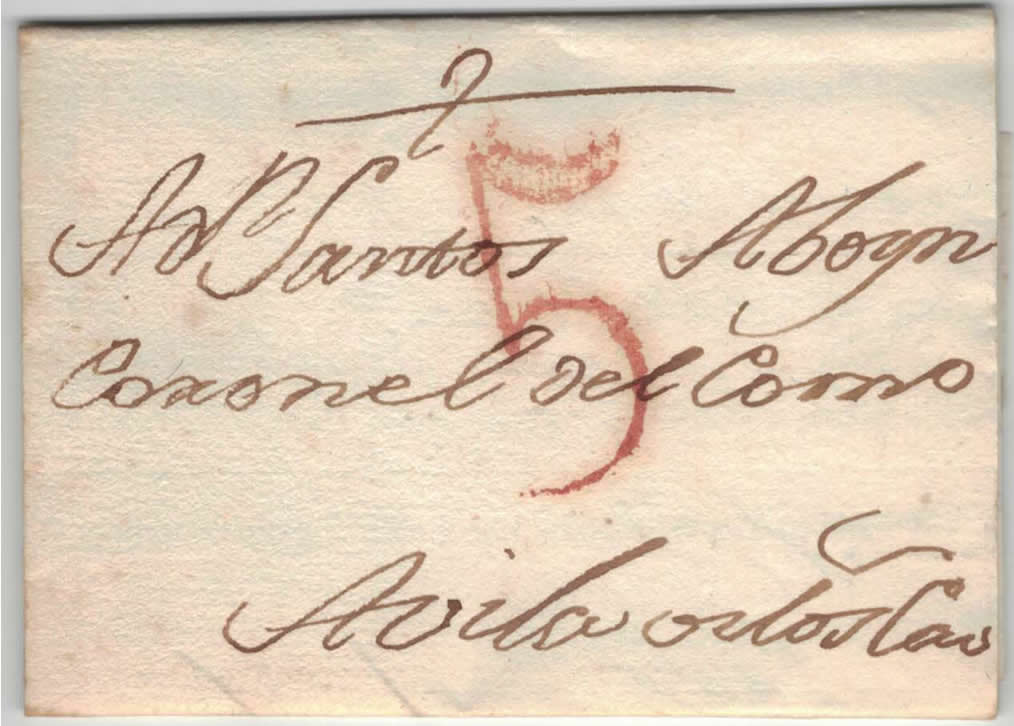 5
A Dn Santos Abogn
Coronel del Corno
Avila de los Cao